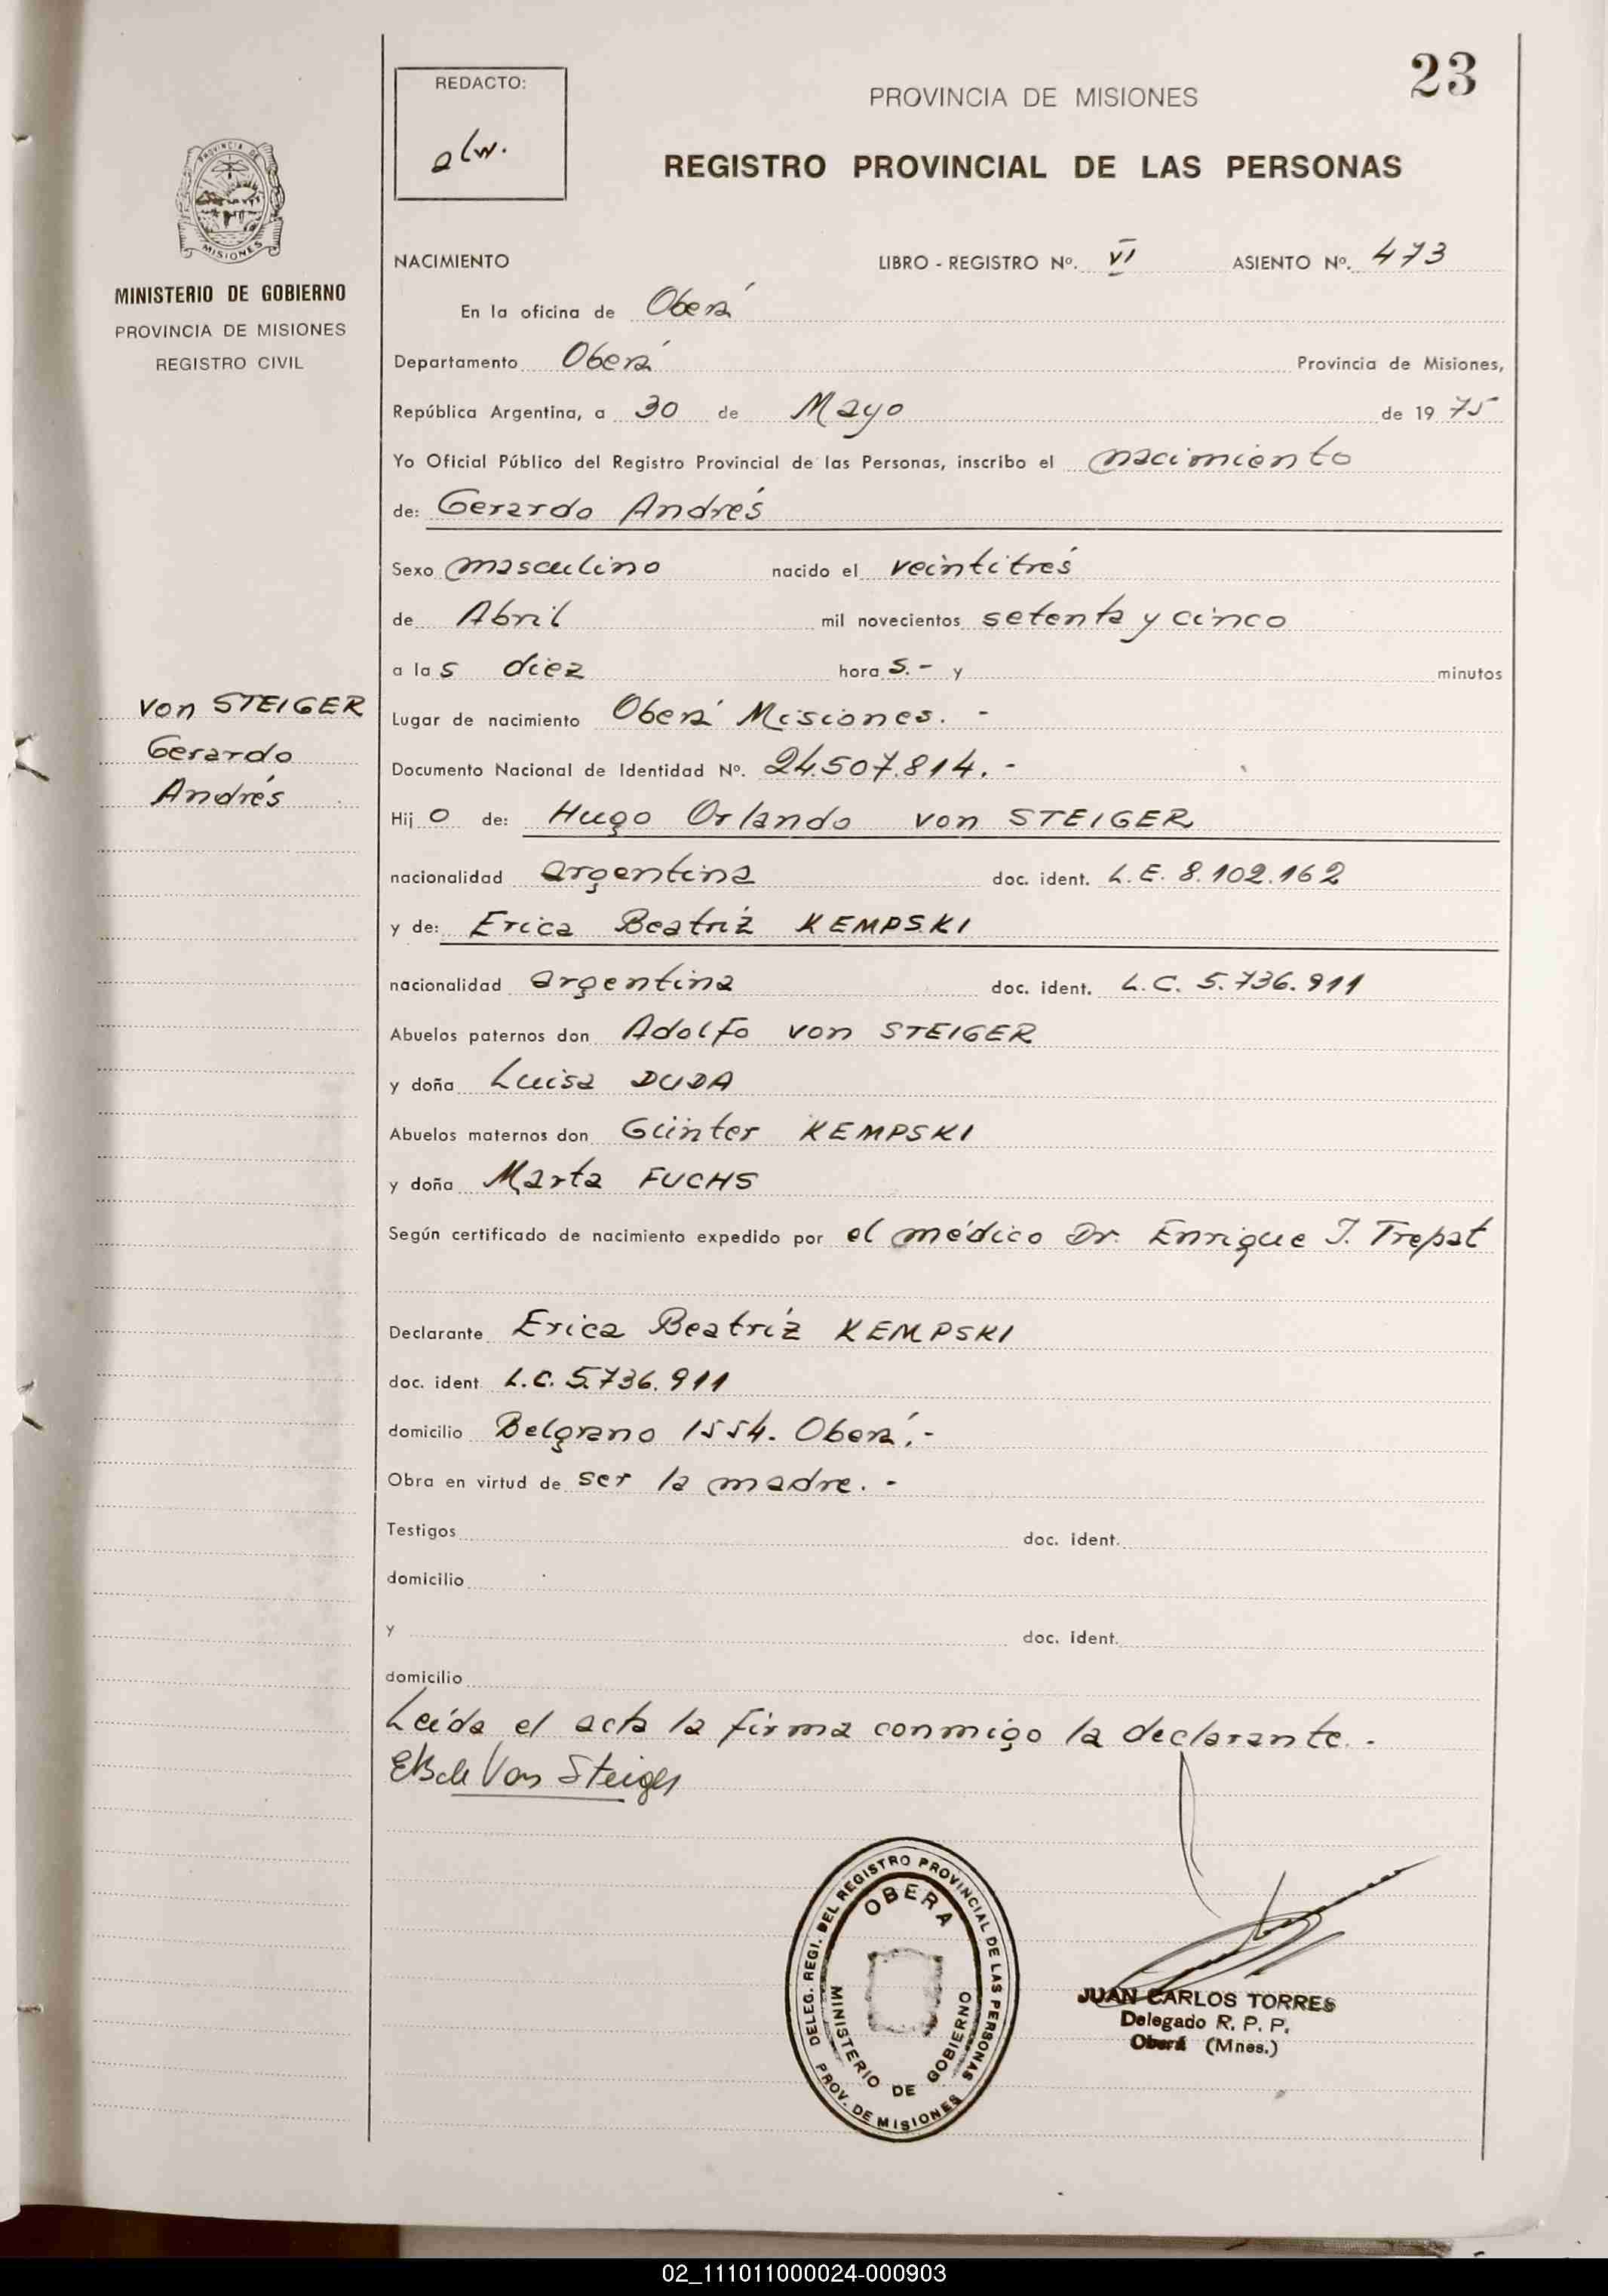 23
REDACTO:
alw.
PROVINCIA DE MISIONES
REGISTRO PROVINCIAL DE LAS PERSONAS
PROVINCIA DE
MISIONES
MINISTERIO DE GOBIERNO
PROVINCIA DE MISIONES
REGISTRO CIVIL
von STEIGER
Gerardo
Andrés
NACIMIENTO LIBRO - REGISTRO Nº. VI ASIENTO Nº. 473
En la oficina de Oberá
Departamento Oberá Provincia de Misiones,
República Argentina, a 30 de Mayo de 1975
Yo Oficial Público del Registro Provincial de las Personas, inscribo el nacimiento
de: Gerardo Andrés
Sexo masculino nacido el veintitrés
de Abril mil novecientos setenta y cinco
a las diez horas.- y minutos
Lugar de nacimiento Oberá Misiones. -
Documento Nacional de Identidad Nº. 24.507.814. -
Hijo de: Hugo Orlando von STEIGER
nacionalidad argentina doc. ident. L.E. 8.102.162
y de: Erica Beatríz KEMPSKI
nacionalidad argentina doc. ident. L.C. 5.736.911
Abuelos paternos don Adolfo von STEIGER
y doña Luisa DUDA
Abuelos maternos don Günter KEMPSKI
y doña Marta FUCHS
Según certificado de nacimiento expedido por el médico Dr. Enrique J. Trepat
Declarante Erica Beatríz KEMPSKI
doc. ident. L.C. 5.736.911
domicilio Belgrano 1554. Oberá.-
Obra en virtud de ser la madre. -
Testigos doc. ident.
domicilio
y doc. ident.
domicilio
Leída el acta la firma conmigo la declarante. -
EB de Von Steiger
DELEG. REGI. DEL REGISTRO PROVINCIAL DE LAS PERSONAS
OBERA
MINISTERIO DE GOBIERNO
PROV. DE MISIONES
JUAN CARLOS TORRES
Delegado R. P. P.
Oberá (Mnes.)
02_111011000024-000903